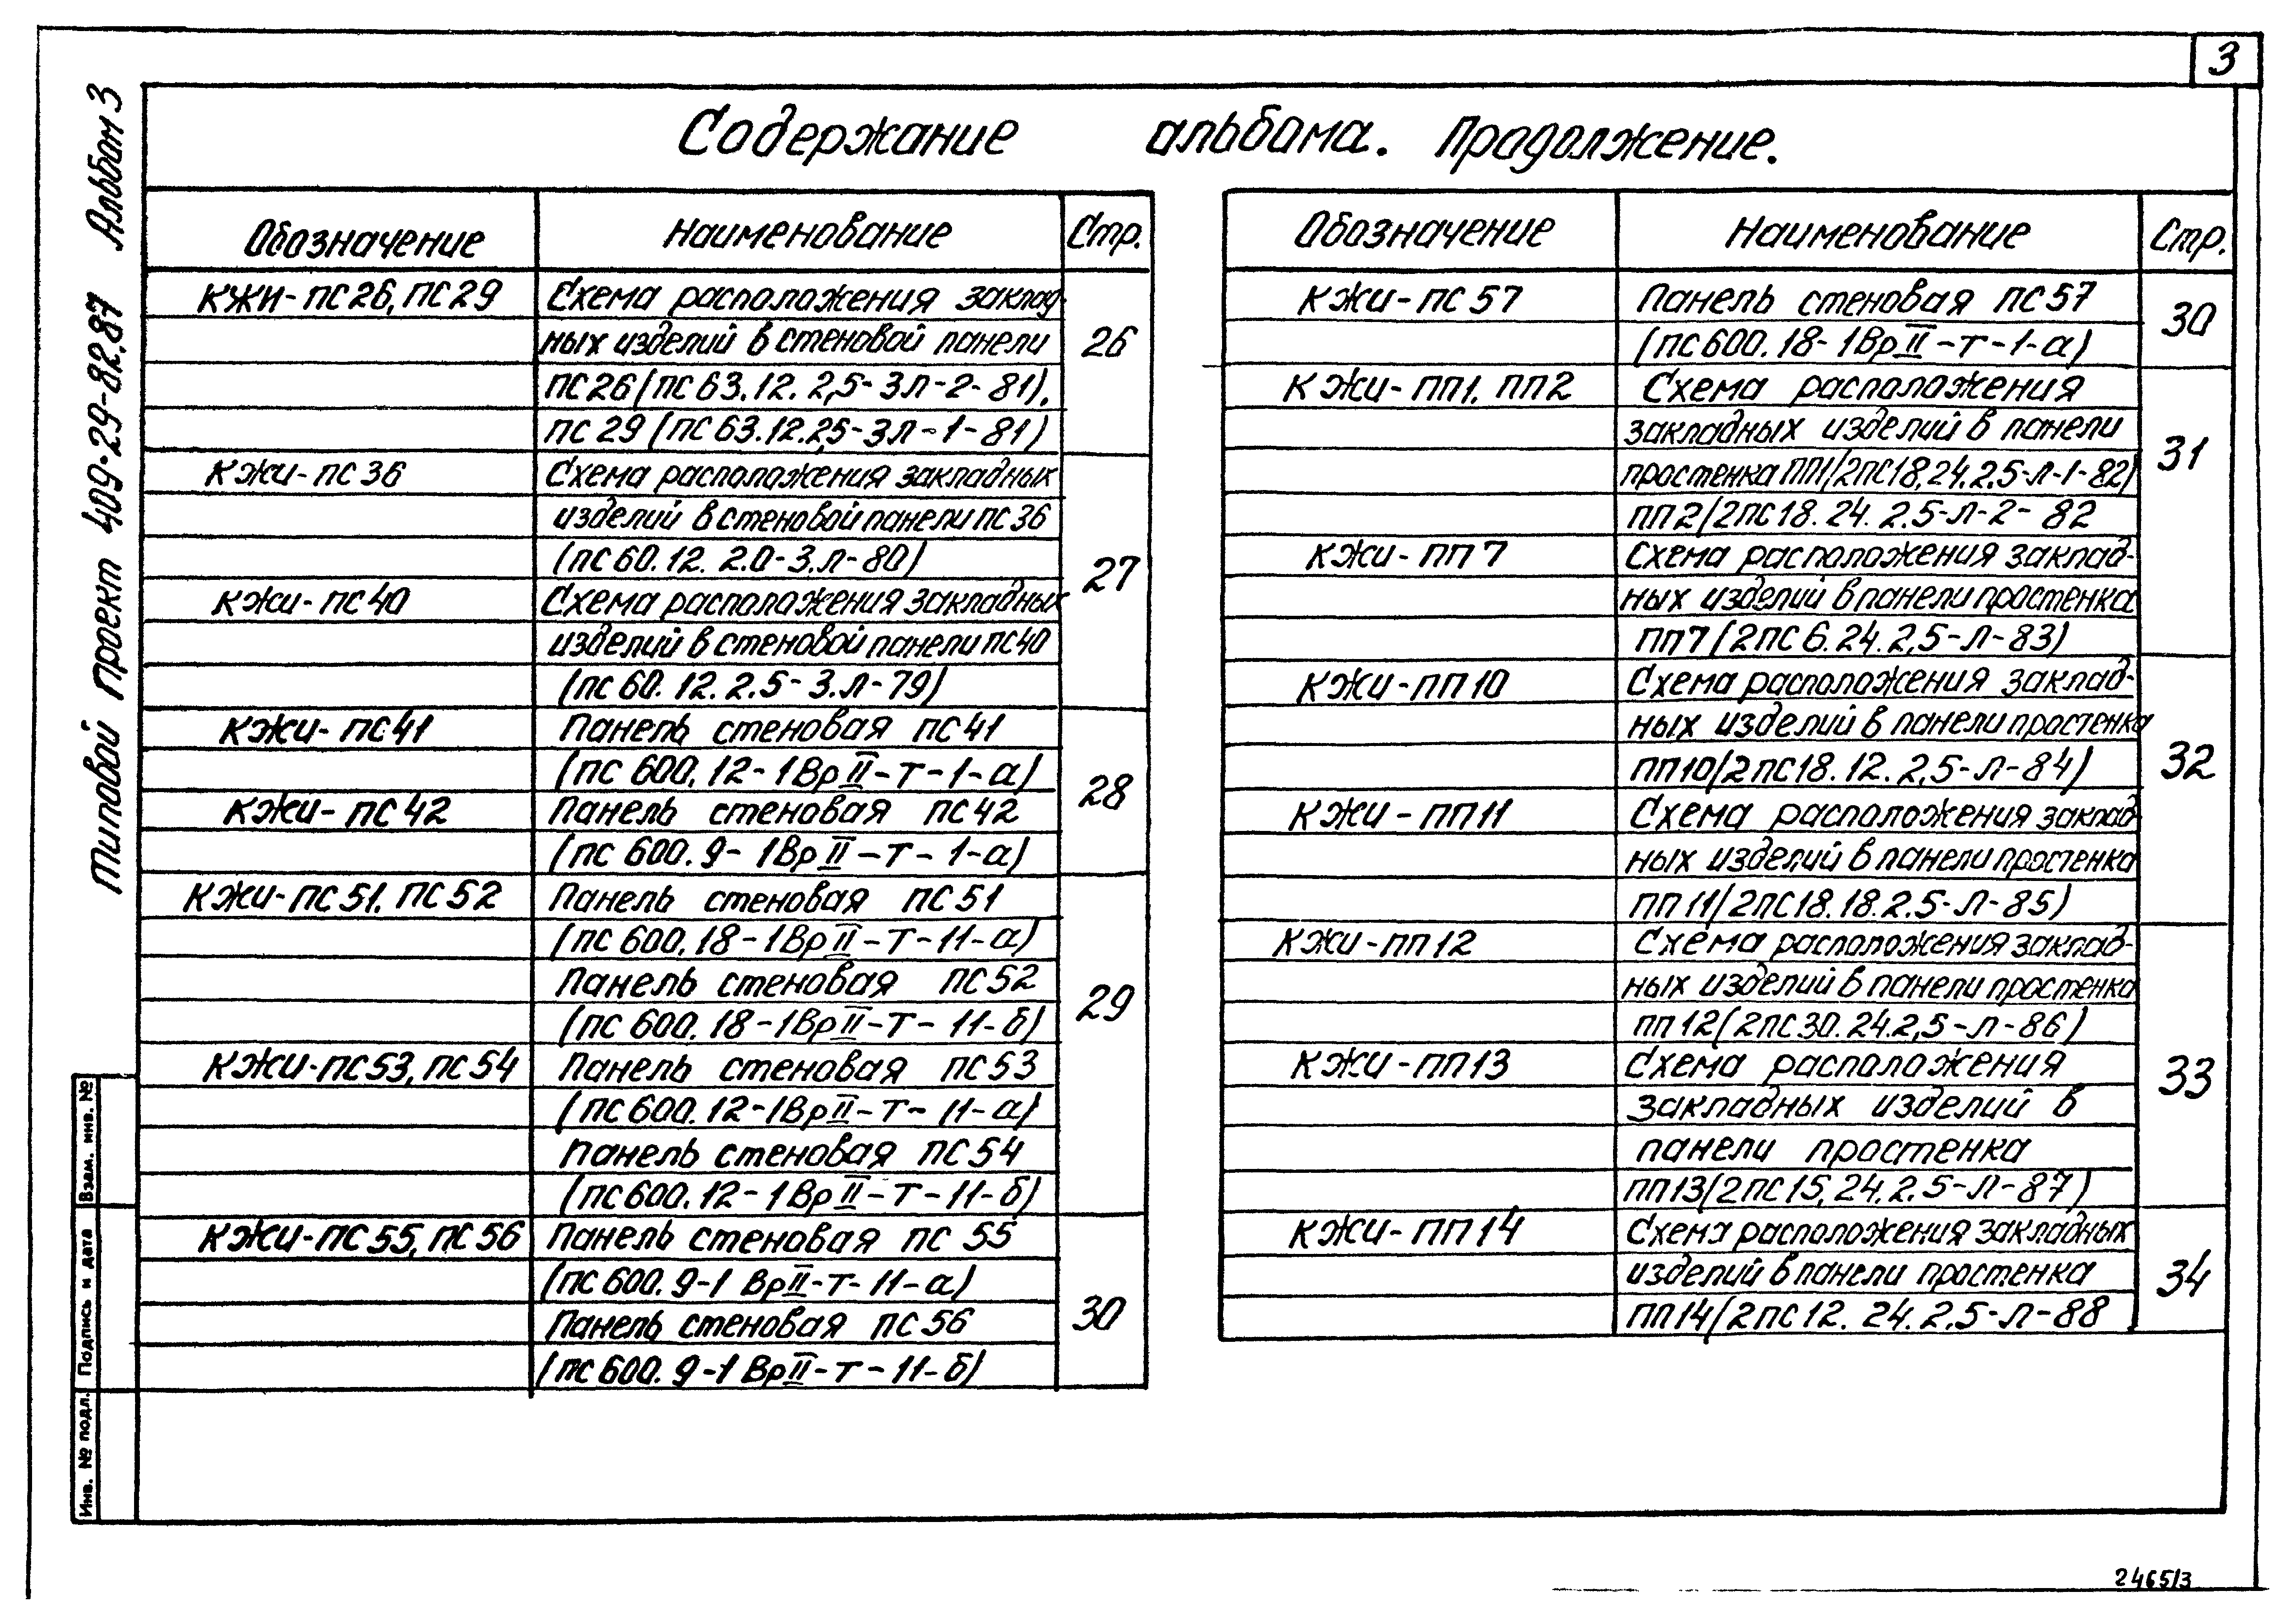 3
Содержание альбома. Продолжение.
Типовой проект 409-29-82.87 Альбом 3
Обозначение Наименование Стр.
КЖИ-ПС26, ПС29 Схема расположения заклад-
ных изделий в стеновой панели 26
ПС26(ПС63.12.2,5-3Л-2-81),
ПС29(ПС63.12.2,5-3Л-1-81)
КЖИ-ПС36 Схема расположения закладных
изделий в стеновой панели ПС36
(ПС60.12.2.0-3.Л-80) 27
КЖИ-ПС40 Схема расположения закладных
изделий в стеновой панели ПС40
(ПС60.12.2.5-3.Л-79)
КЖИ-ПС41 Панель стеновая ПС41
(ПС600.12-1ВрII-Т-1-а) 28
КЖИ-ПС42 Панель стеновая ПС42
(ПС600.9-1ВрII-Т-1-а)
КЖИ-ПС51, ПС52 Панель стеновая ПС51
(ПС600.18-1ВрII-Т-11-а)
Панель стеновая ПС52 29
(ПС600.18-1ВрII-Т-11-б)
КЖИ-ПС53, ПС54 Панель стеновая ПС53
(ПС600.12-1ВрII-Т-11-а)
Панель стеновая ПС54
(ПС600.12-1ВрII-Т-11-б)
КЖИ-ПС55, ПС56 Панель стеновая ПС55
(ПС600.9-1ВрII-Т-11-а)
Панель стеновая ПС56 30
(ПС600.9-1ВрII-Т-11-б)
Обозначение Наименование Стр.
КЖИ-ПС57 Панель стеновая ПС57 30
(ПС600.18-1ВрII-Т-1-а)
КЖИ-ПП1, ПП2 Схема расположения
закладных изделий в панели 31
простенка ПП1(2ПС18.24.2.5-Л-1-82)
ПП2(2ПС18.24.2.5-Л-2-82
КЖИ-ПП7 Схема расположения заклад-
ных изделий в панели простенка
ПП7(2ПС6.24.2,5-Л-83)
КЖИ-ПП10 Схема расположения заклад-
ных изделий в панели простенка
ПП10(2ПС18.12.2,5-Л-84) 32
КЖИ-ПП11 Схема расположения заклад-
ных изделий в панели простенка
ПП11(2ПС18.18.2.5-Л-85)
КЖИ-ПП12 Схема расположения заклад-
ных изделий в панели простенка
ПП12(2ПС30.24.2,5-Л-86)
КЖИ-ПП13 Схема расположения 33
закладных изделий в
панели простенка
ПП13(2ПС15.24.2.5-Л-87)
КЖИ-ПП14 Схема расположения закладных
изделий в панели простенка 34
ПП14(2ПС12.24.2.5-Л-88
Инв. № подл. Подпись и дата Взам. инв. №
2465/3